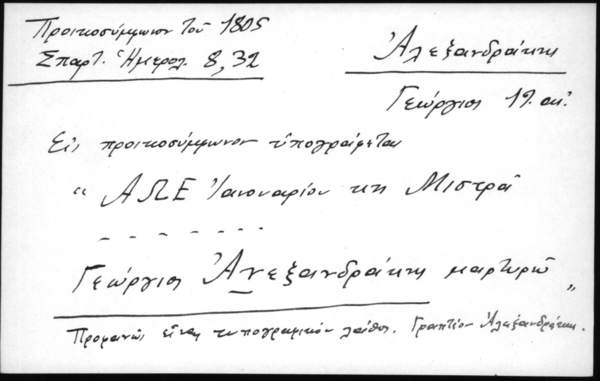 Προικοσύμφωνον τοῦ 1805
Σπαρτ. Ἡμερολ. 8, 32
Ἀλεξανδράκης
Γεώργιος 19. αἰ.
Εἰς προικοσύμφωνον ὑπογράφεται
“ ΑΩΕ Ἰανουαρίου κη Μιστρᾶ
- - - - - - -
Γεώργιος Ἀνεξανδράκης μαρτυρῶ „
Προφανῶς εἶναι τυπογραφικὸν λάθος. Γραπτέον Ἀλεξανδράκης.